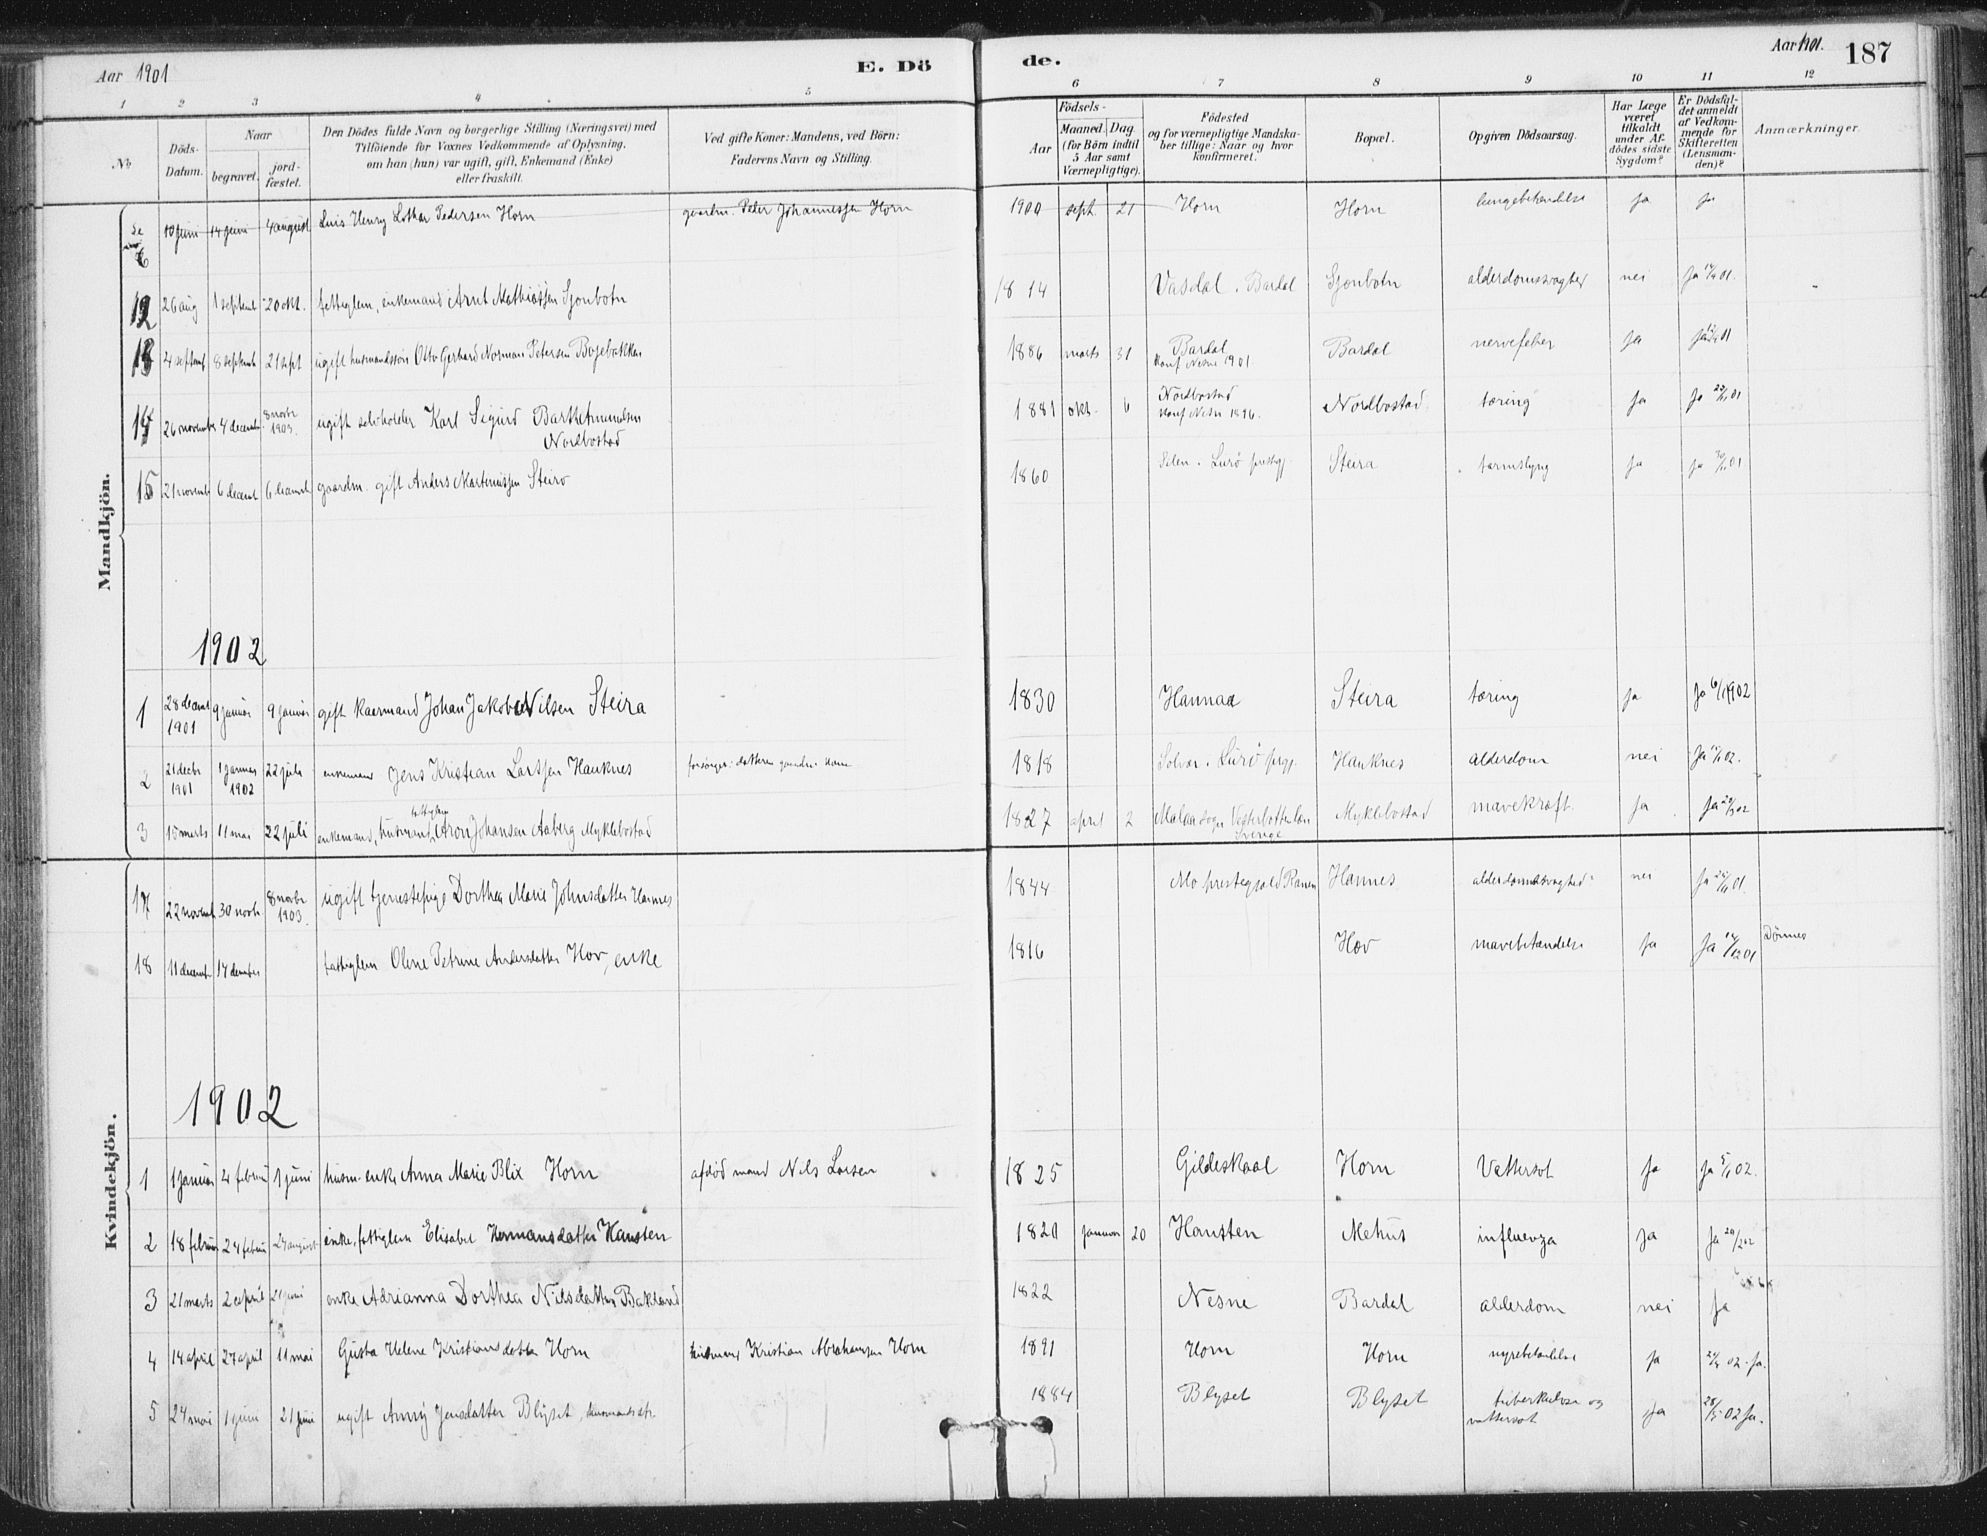 Aar 1901 E. Dö de. Aar 1901. 187
1 2 3 4 5 6 7 8 9 10 11 12
No
Döds-
Datum.
Naar
begravet.
jord-
fæstet.
Den Dödes fulde Navn og borgerlige Stilling (Næringsvei) med
Tilföiende for Voxnes Vedkommende af Oplysning,
om han (hun) var ugift, gift, Enkemand (Enke)
eller fraskilt.
Ved gifte Koner: Mandens, ved Börn:
Faderens Navn og Stilling.
Födsels-
Aar
Maaned. Dag
(for Börn indtil
5 Aar samt
Værnepligtige).
Födested
og for værnepligtige Mandska-
ber tillige: Naar og hvor
konfirmeret.
Bopæl.
Opgiven Dödsaarsag.
Har Læge
været
tilkaldt
under Af-
dödes sidste
Sygdom?
Er Dödsfal-
det anmeldt
af Vedkom-
mende for
Skifteretten
(Lensman-
den)?
Anmærkninger.
Mandkjön.
10 juni 14 juni 4 august Luis Henry Lothar Pedersen Horn gaardm. Peter Johannessen Horn 1900 sept. 21 Horn Horn lungebetændelse ja ja
12 26 aug 1 septemb 20 okt. fattiglem, enkemand Arnt Mathiassen Sjonbotn 1814 Vasdal i Bardal Sjonbotn alderdomssvaghed nei ja
13 4 septemb 8 septemb 21 sept ugift husmandssön Otto Gerhard Norman Petersen 1886 marts 31 Bardal Bardal nervefeber ja
konf Nesne 1901
14 26 november 4 decemb 8 novbr 1903. ugift selvholder Karl Sigurd 1881 okt. 6 Nordbostad Nordbostad tæring ja ja
Nordbostad konf Nesn 1896.
15 21 novemb 6 decemb 6 decemb gaardm. gift Anders Martinussen Steiro 1860 Lurö prestegj Steira tarmslyng ja ja
1902
1 28 decemb 1901 9 januar 9 januar gift kaarmand Johan Jakob Nilsen Steira 1830 Hannaa Steira tæring ja ja 6/1 1902
2 21 decbr 1901 1 januar 1902 22 juli enkemand Jens Kristian Larssen Hauknes 1818 Lurö prgj. Hauknes alderdom nei ja
fattiglem
3 15 marts 11 mai 22 juli enkemand, husmand, Aron Johansen Aaberg Myklebostad 1827 april 2 Vesterbotten Myklebostad mavekræft. ja ja
Sverige
Kvindekjön.
17 22 novemb 30 novbr 8 novbr 1903. ugift tjenestepige Dorthea Marie Johnsdatter Hannes 1844 Mo prestegjeld Ranen Hannes alderdomssvaghed nei ja
18 11 decemb 17 december fattiglem Oline Petrine Andersdatter Hov, enke 1816 Hov mavebetændelse ja ja Dönnes
1902
1 1 januar 4 februar 1 juni husm. enke Anna Marie Blix Horn afdöd mand Nils Larsen 1825 Gildeskaal Horn Vattersot ja ja 5/1 02.
2 18 februar 24 februar 24 august enke, fattiglem Elisabet Hermansdatter Hansten 1820 januar 20 Hansten Mehus influenza ja ja
3 21 marts 2 april 21 juni enke Adrianna Dorthea Nilsdatter Bakland 1822 Nesne Bardal alderdom nei ja
4 14 april 27 april 11 mai Gusta Helene Kristiansdatter Horn husmand Kristian Abrahamsen Horn 1891 Horn Horn nyrebetændelse ja ja.
5 24 mai 1 juni 21 juni ugift Anny Jensdatter Blyset, 1884 Blyset Blyset tuberkulose og ja 28/5 02 ja.
vattersot